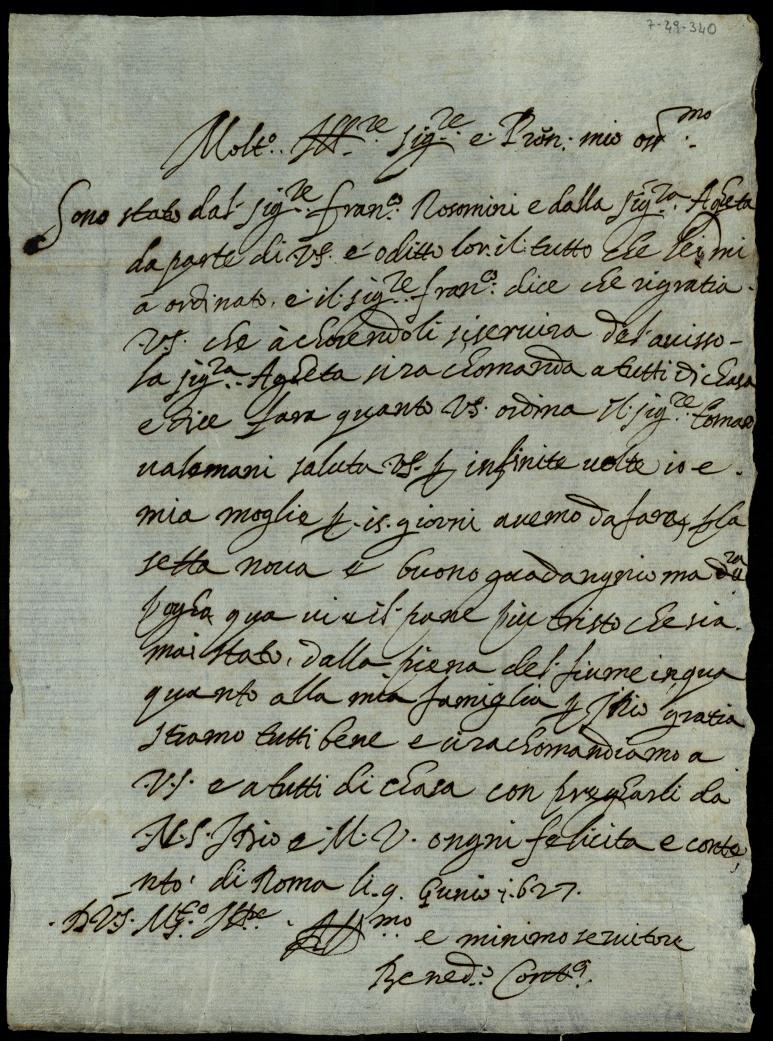 7-29-340
Molt.º Ill.re Sig.re e Pron: mio oss.mo
Sono stato dal sig.re Fran.co Rosomini e dalla sig.ra Agheta
da parte di VS. e o ditto lor. il tutto che lei mi
a ordinato, e il sig.re fran.co dice che rigratia
VS. che achorendoli si servira del avisso
la sig.ra Agheta si rachomanda a tutti di chasa
e dice fara quanto VS. ordina Il sig.re Tomaso
valemani saluta VS. p infinite volte io e
mia moglie p. 15. giorni avemo da fare p la
setta nova e buono guadangnio ma
qua vi è il pane piu tristo che sia
mai stato, dalla piena del fiume in qua
quanto alla mia famiglia p Idio gratia
stiamo tutti bene e ci rachomandiamo a
V.S. e a tutti di chasa con pregharli da
N.S. Idio e M.V. ongni felicita e conte,
nto, di Roma li. 9. Gunio 1627.
D VS. M.to Ill.re Aff.mo e minimo servitore
Bened.o Cont.i